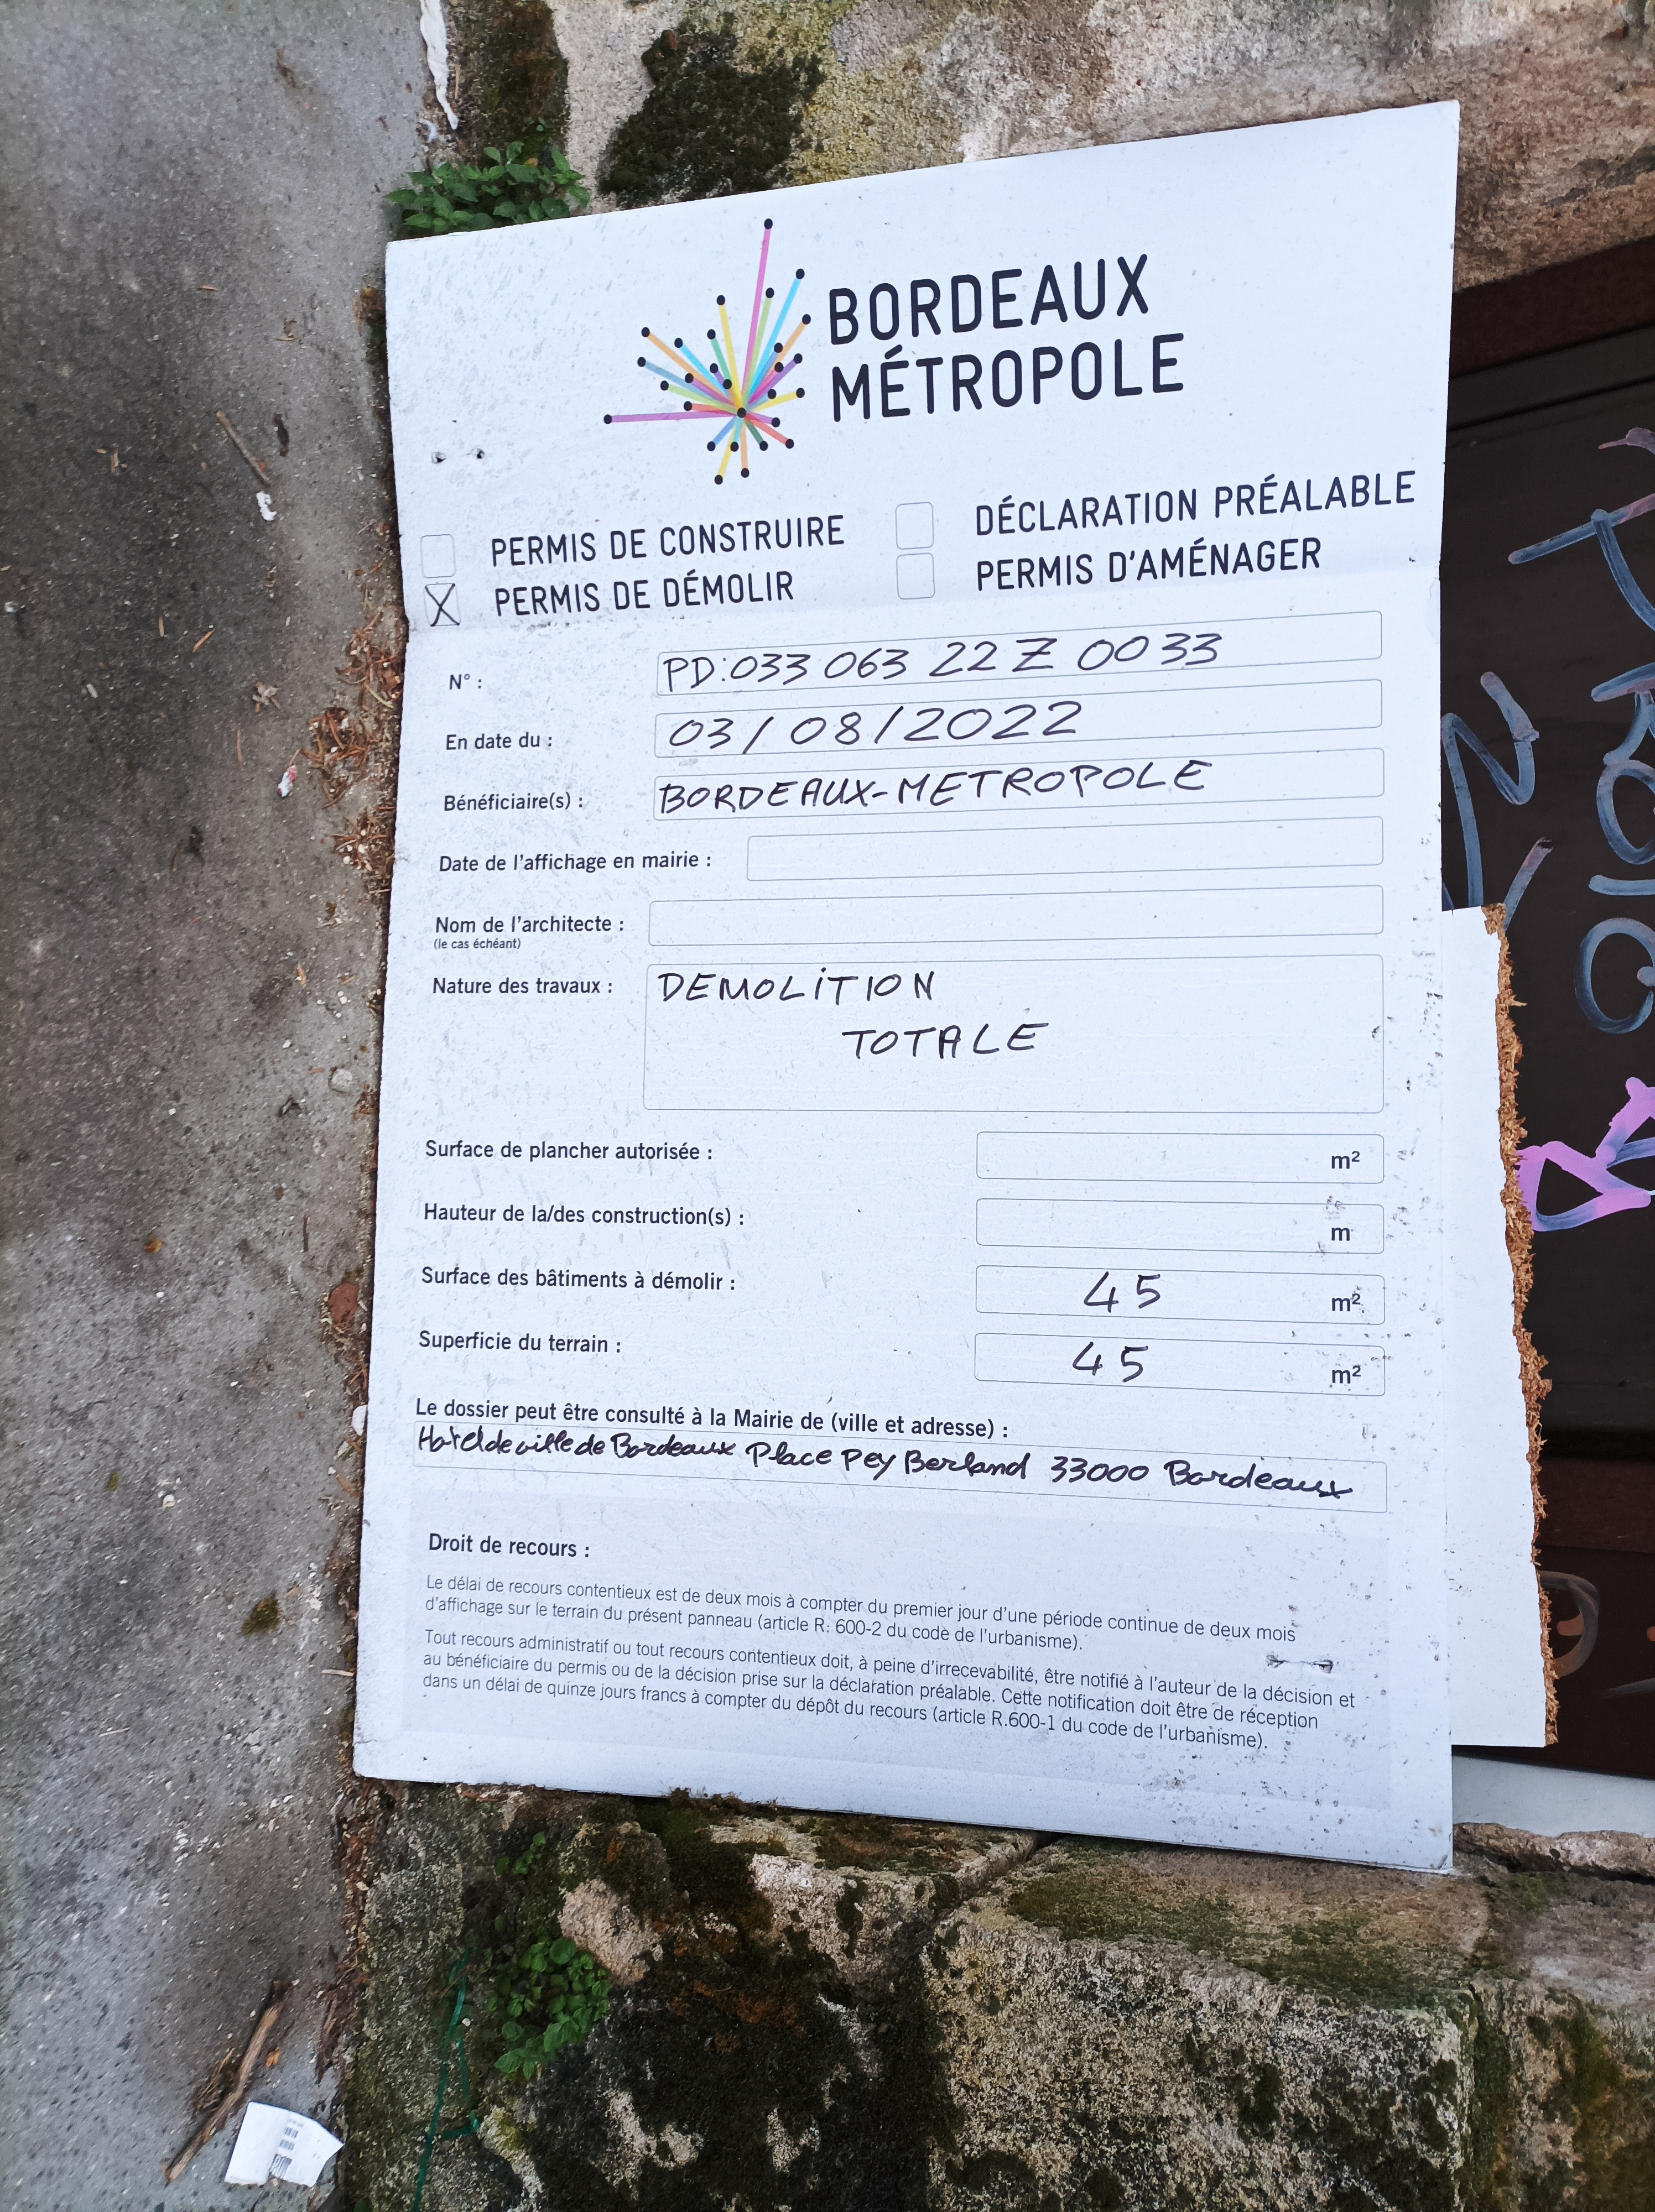 BORDEAUX
MÉTROPOLE
PERMIS DE CONSTRUIRE
DÉCLARATION PRÉALABLE
X PERMIS DE DÉMOLIR
PERMIS D'AMÉNAGER
N° : PD:033 063 22 Z 0033
En date du : 03/08/2022
Bénéficiaire(s) : BORDEAUX-METROPOLE
Date de l'affichage en mairie :
Nom de l'architecte :
(le cas échéant)
Nature des travaux : DEMOLITION
TOTALE
Surface de plancher autorisée : m²
Hauteur de la/des construction(s) : m
Surface des bâtiments à démolir : 45 m²
Superficie du terrain : 45 m²
Le dossier peut être consulté à la Mairie de (ville et adresse) :
Hotel de ville de Bordeaux Place Pey Berland 33000 Bordeaux
Droit de recours :
Le délai de recours contentieux est de deux mois à compter du premier jour d'une période continue de deux mois
d'affichage sur le terrain du présent panneau (article R. 600-2 du code de l'urbanisme).
Tout recours administratif ou tout recours contentieux doit, à peine d'irrecevabilité, être notifié à l'auteur de la décision et
au bénéficiaire du permis ou de la décision prise sur la déclaration préalable. Cette notification doit être de réception
dans un délai de quinze jours francs à compter du dépôt du recours (article R.600-1 du code de l'urbanisme).